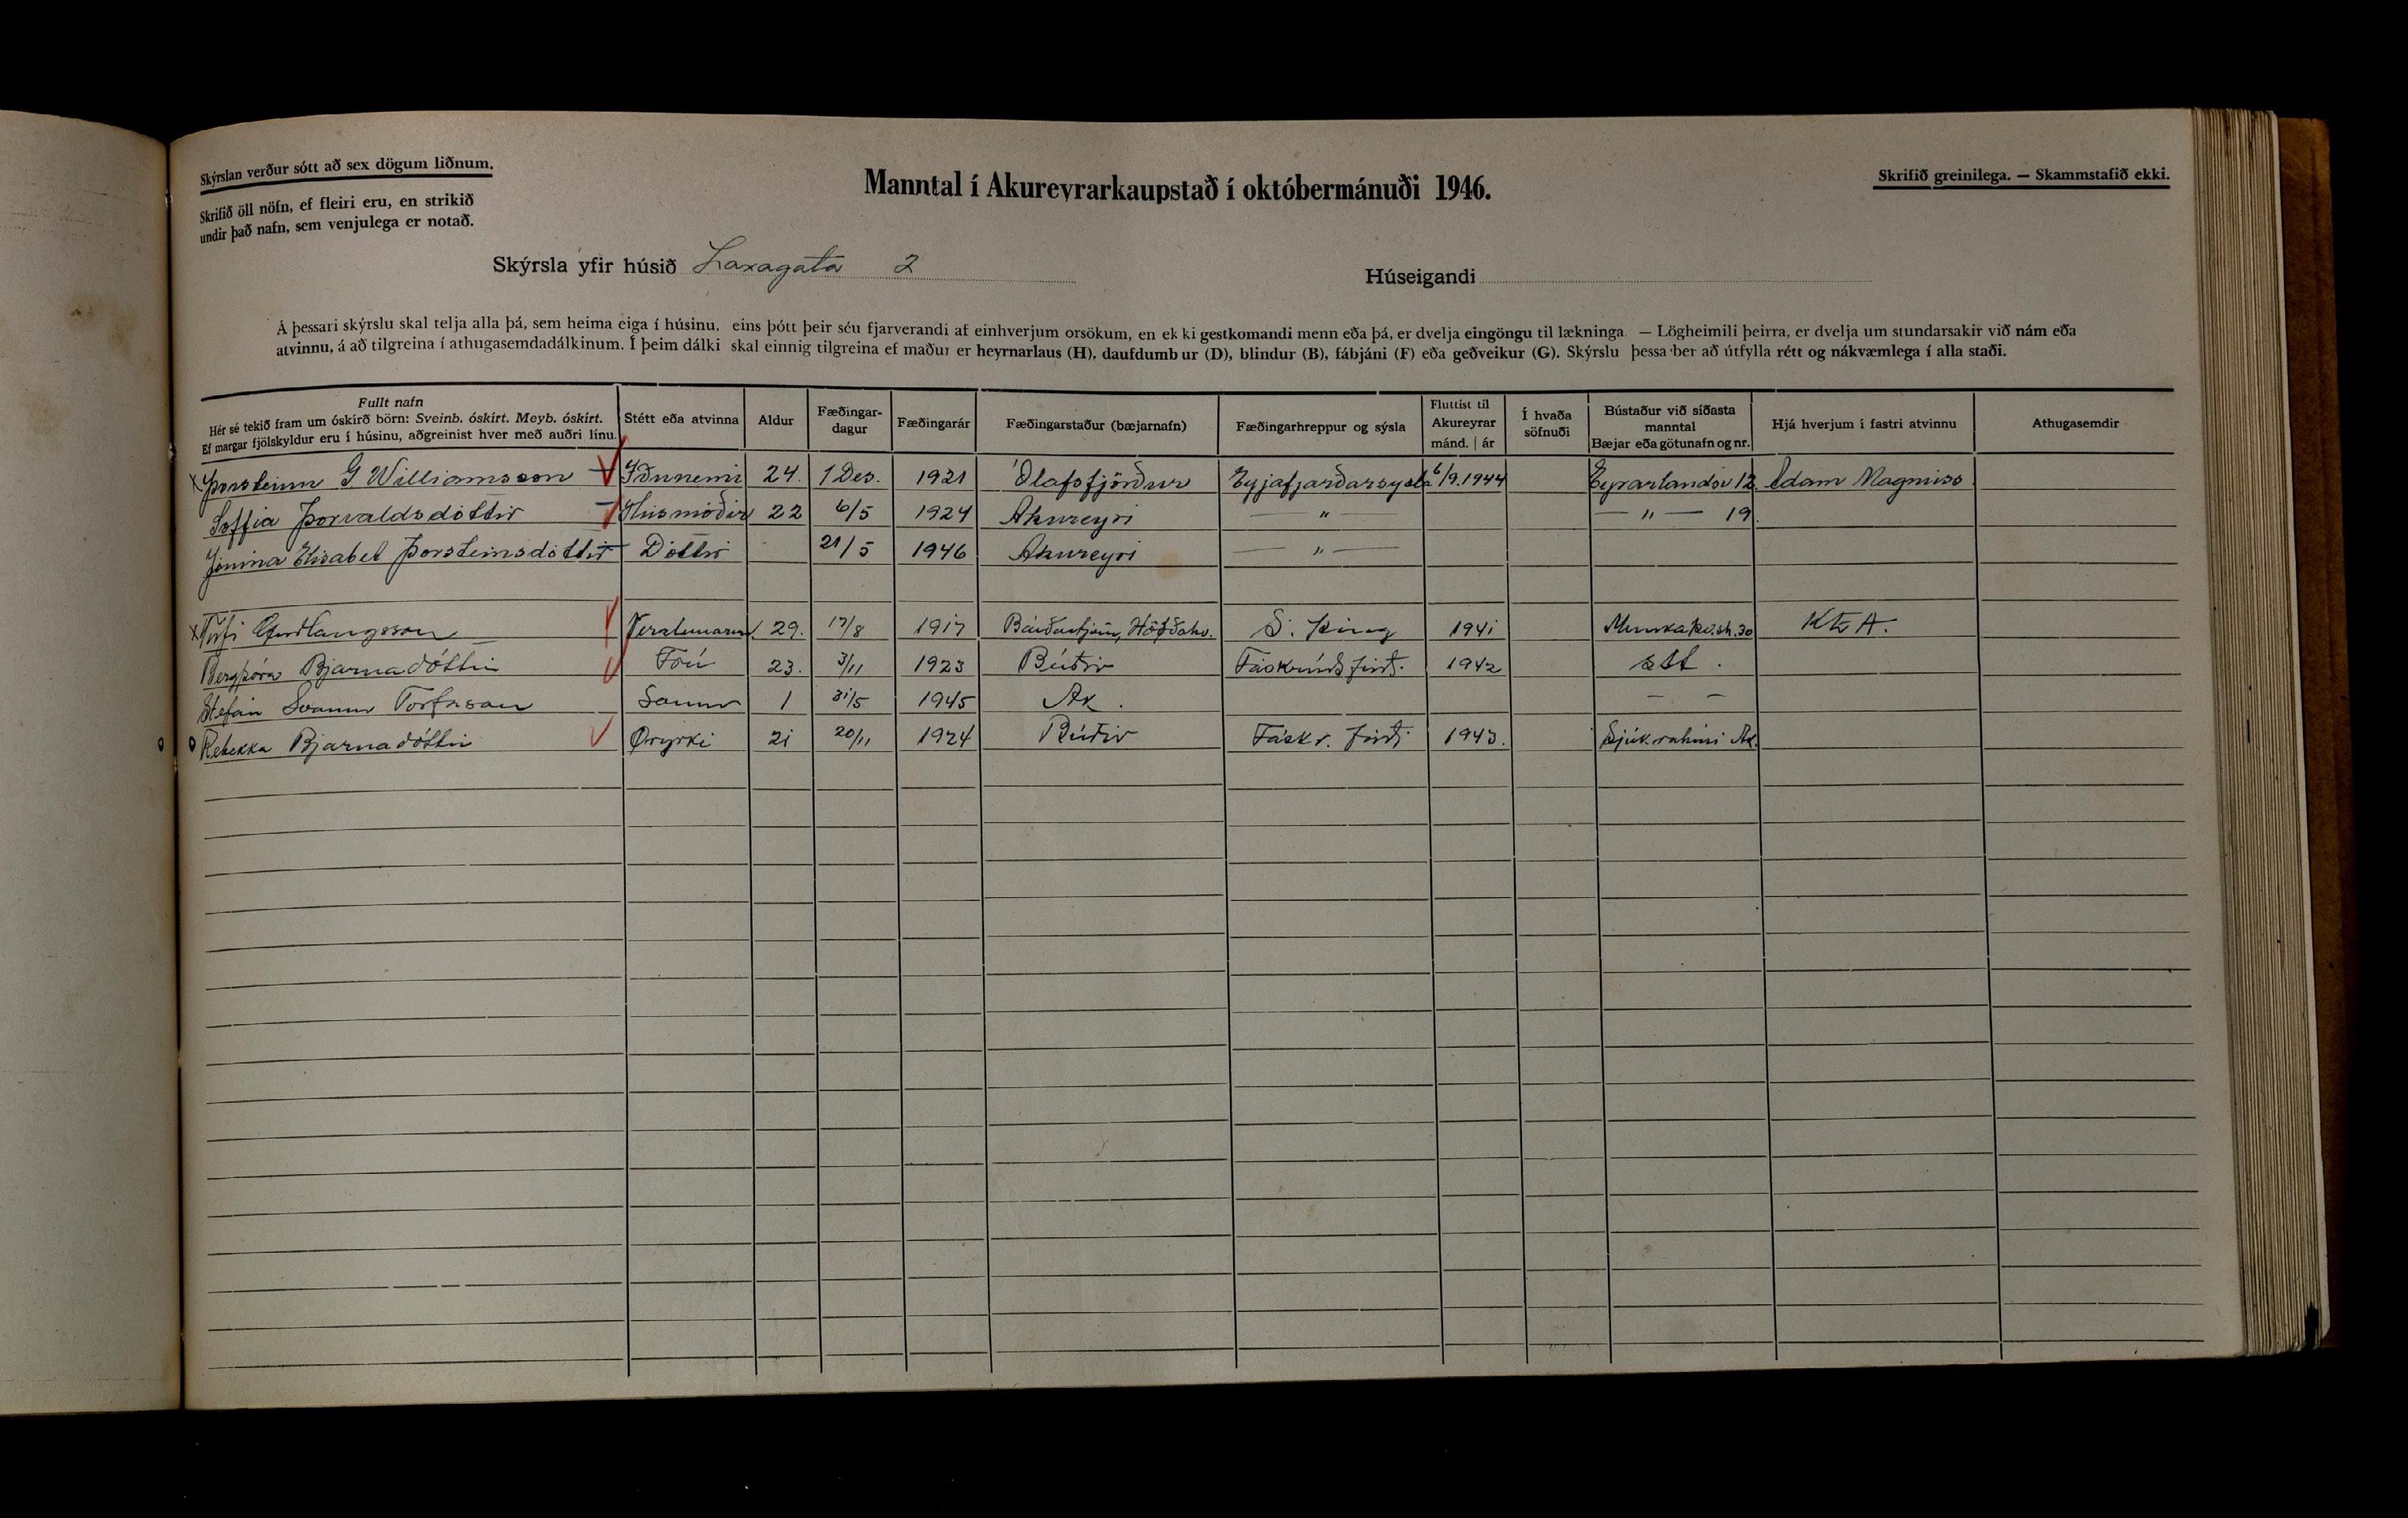 Skýrslan verður sótt að sex dögum liðnum.
Skrifið öll nöfn, ef fleiri eru, en strikið
undir það nafn, sem venjulega er notað.
Manntal í Akureyrarkaupstað í októbermánuði 1946.
Skrifið greinilega. — Skammstafið ekki.
Skýrsla yfir húsið Laxagata 2
Húseigandi
Á þessari skýrslu skal telja alla þá, sem heima eiga í húsinu, eins þótt þeir séu fjarverandi af einhverjum orsökum, en ek ki gestkomandi menn eða þá, er dvelja eingöngu til lækninga. — Lögheimili þeirra, er dvelja um stundarsakir við nám eða
atvinnu, á að tilgreina í athugasemdadálkinum. Í þeim dálki skal einnig tilgreina ef maður er heyrnarlaus (H), daufdumb ur (D), blindur (B), fábjáni (F) eða geðveikur (G). Skýrslu þessa ber að útfylla rétt og nákvæmlega í alla staði.
Fullt nafn
Hér sé tekið fram um óskírð börn: Sveinb. óskírt. Meyb. óskírt.
Ef margar fjölskyldur eru í húsinu, aðgreinist hver með auðri línu.
Stétt eða atvinna
Aldur
Fæðingar-
dagur
Fæðingarár
Fæðingarstaður (bæjarnafn)
Fæðingarhreppur og sýsla
Fluttist til
Akureyrar
mánd. | ár
Í hvaða
söfnuði
Bústaður við síðasta
manntal
Bæjar eða götunafn og nr.
Hjá hverjum í fastri atvinnu
Athugasemdir
x Þorsteinn G Williamsson Iðnnemi 24. 1 Des. 1921 Ólafsfjörður Eyjafjarðarsysla 6/9.1944 Eyrarlandsv 12. Adam Magnúss
Soffía Þorvaldsdóttir Húsmóðir 22 6/5 1924 Akureyri — " — — " — 19
Jónína Elísabet Þorsteinsdóttir Dóttir 21/5 1946 Akureyri — " —
x Tryggvi 29. 17/8 1917 S. Þing 1941 Munkaþv.str. 30 K E A.
Bergþóra Bjarnadóttir Frú 23. 3/11 1923 Búðir Fáskrúðsfirði. 1942 sst.
Stefán Svanur Torfason Sonur 1 31/5 1945 Ak. – –
o Rebekka Bjarnadóttir Öryrki 21 20/11 1924 Búðir Fáskr. firði. 1943. Sjúkrahúsi Ak.